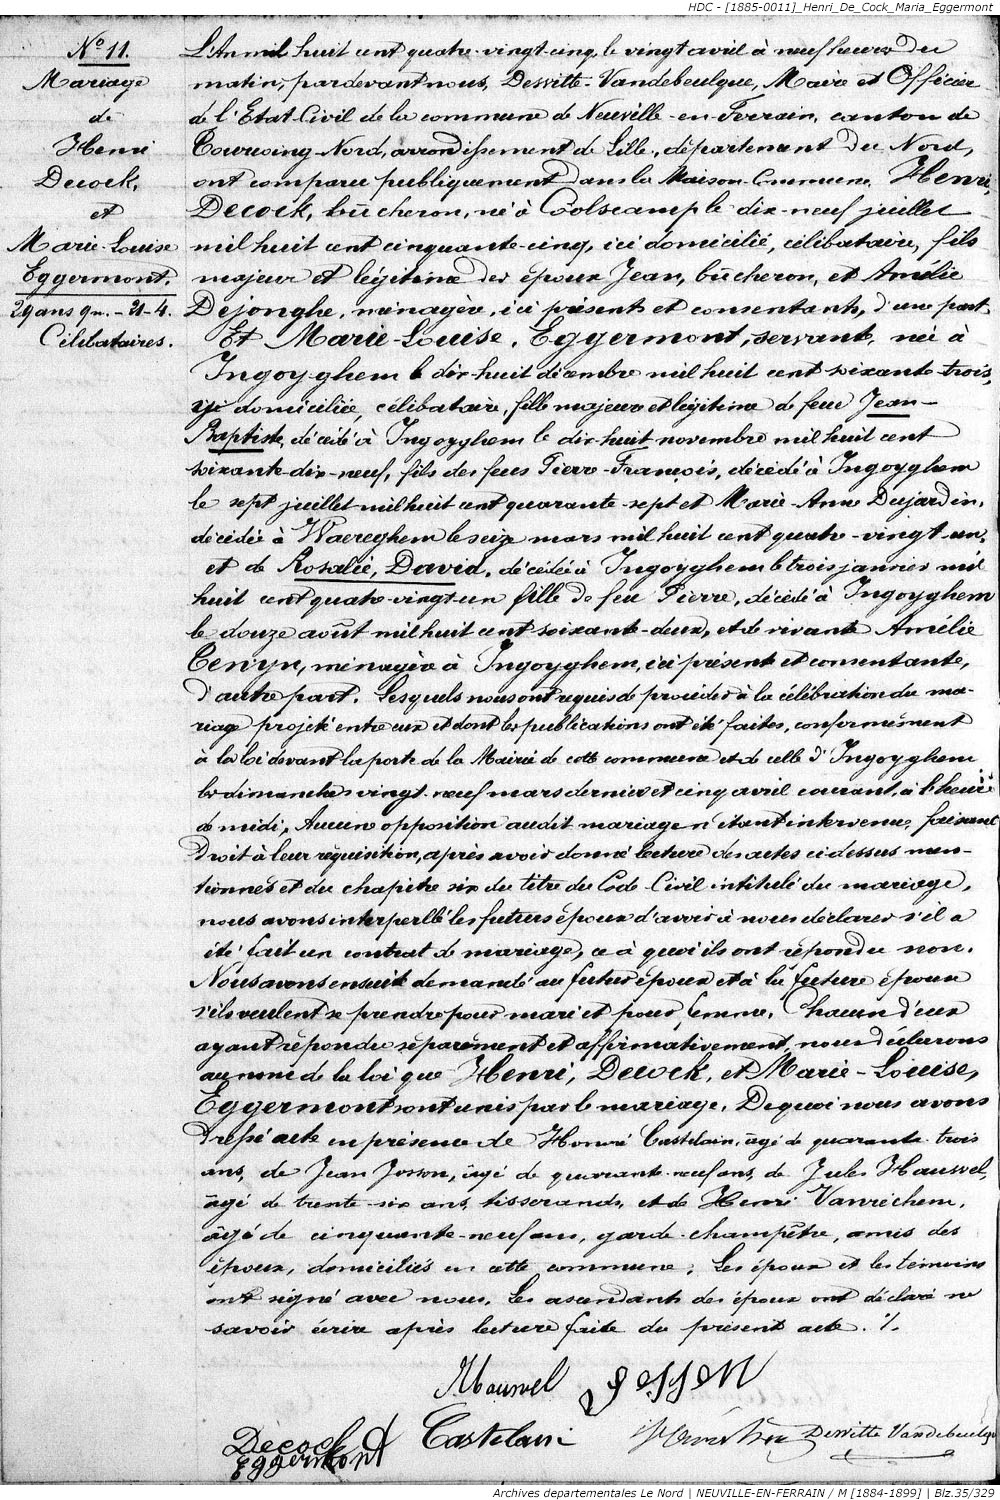 HDC - [1885-0011]_Henri_De_Cock_Maria_Eggermont
Nº 11.
Mariage
de
Henri
Decock,
et
Marie-Louise
Eggermont.
29 ans 9m. - 21-4.
Célibataires.
L'An mil huit cent quatre-vingt-cinq, le vingt avril à neuf heures du
matin, pardevant nous, Desvitte-Vandebeulque, Maire et Officier
de l'Etat-Civil de la commune de Neuville-en-Ferrain, canton de
Tourcoing-Nord, arrondissement de Lille, département du Nord,
ont comparu publiquement dans la Maison-Commune, Henri,
Decock, bûcheron, né à Oolscamp le dix-neuf juillet
mil huit cent cinquante-cinq, ici domicilié, célibataire, fils
majeur et légitime des époux Jean, bûcheron, et Amélie
Dejonghe, ménagère, ici présents et consentants, d'une part.
Et Marie-Louise, Eggermont, servante, née à
Ingoyghem le dix-huit décembre mil huit cent soixante-trois,
ici domiciliée, célibataire, fille majeure et légitime de feu Jean-
Baptiste, décédé à Ingoyghem le dix-huit novembre mil huit cent
soixante-dix-neuf, fils des feus Pierre-François, décédé à Ingoyghem
le sept juillet mil huit cent quarante-sept et Marie-Anne Dujardin,
décédée à Waereghem le seize mars mil huit cent quatre-vingt-un,
et de Rosalie, David, décédée à Ingoyghem le trois janvier mil
huit cent quatre-vingt-un fille de feu Pierre, décédé à Ingoyghem
le douze août mil huit cent soixante-deux, et de vivante Amélie
ménagère à Ingoyghem, ici présente et consentante,
d'autre part. Lesquels nous ont requis de procéder à la célébration du ma-
riage projeté entre eux et dont les publications ont été faites, conformément
à la loi devant la porte de la Mairie de cette commune et de celle d'Ingoyghem
les dimanches vingt-neuf mars dernier et cinq avril courant, à l'heure
de midi, Aucune opposition audit mariage n'étant intervenue, faisant
droit à leur réquisition, après avoir donné lecture des actes ci-dessus men-
tionnés et du chapitre six du titre du Code-Civil intitulé du mariage,
nous avons interpellé les futurs époux d'avoir à nous déclarer s'il a
été fait un contrat de mariage, ce à quoi ils ont répondu non.
Nous avons ensuite demandé au futur époux et à la future épouse
s'ils veulent se prendre pour mari et pour femme. Chacun d'eux
ayant répondu séparément et affirmativement, nous déclarons
au nom de la loi que Henri, Decock, et Marie-Louise,
Eggermont sont unis par le mariage. De quoi nous avons
dressé acte en présence de Honoré Castelain, âgé de quarante-trois
ans, de Jean Josson, âgé de quarante-neuf ans, de Jules Hauwel,
âgé de trente-six ans, tisserands, et de Henri Vanrechem,
âgé de cinquante-neuf ans, garde-champêtre, amis des
époux, domiciliés en cette commune. Les époux et les témoins
ont signé avec nous. Les ascendants des époux ont déclaré ne
savoir écrire après lecture faite du présent acte. ./.
Hauwel Jossen
Decock Castelain Desvitte Vandebeulque
Eggermont
Archives departementales Le Nord | NEUVILLE-EN-FERRAIN / M [1884-1899] | Blz.35/329